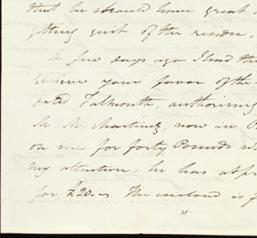 that he should have great
getting quit of the
a few days ago I had the
receive your favor of the
dated Falmouth, authorising
Mr. M. Martinez, now in
on me for forty Pounds
my attention, he has
for £20.— The enclosed is